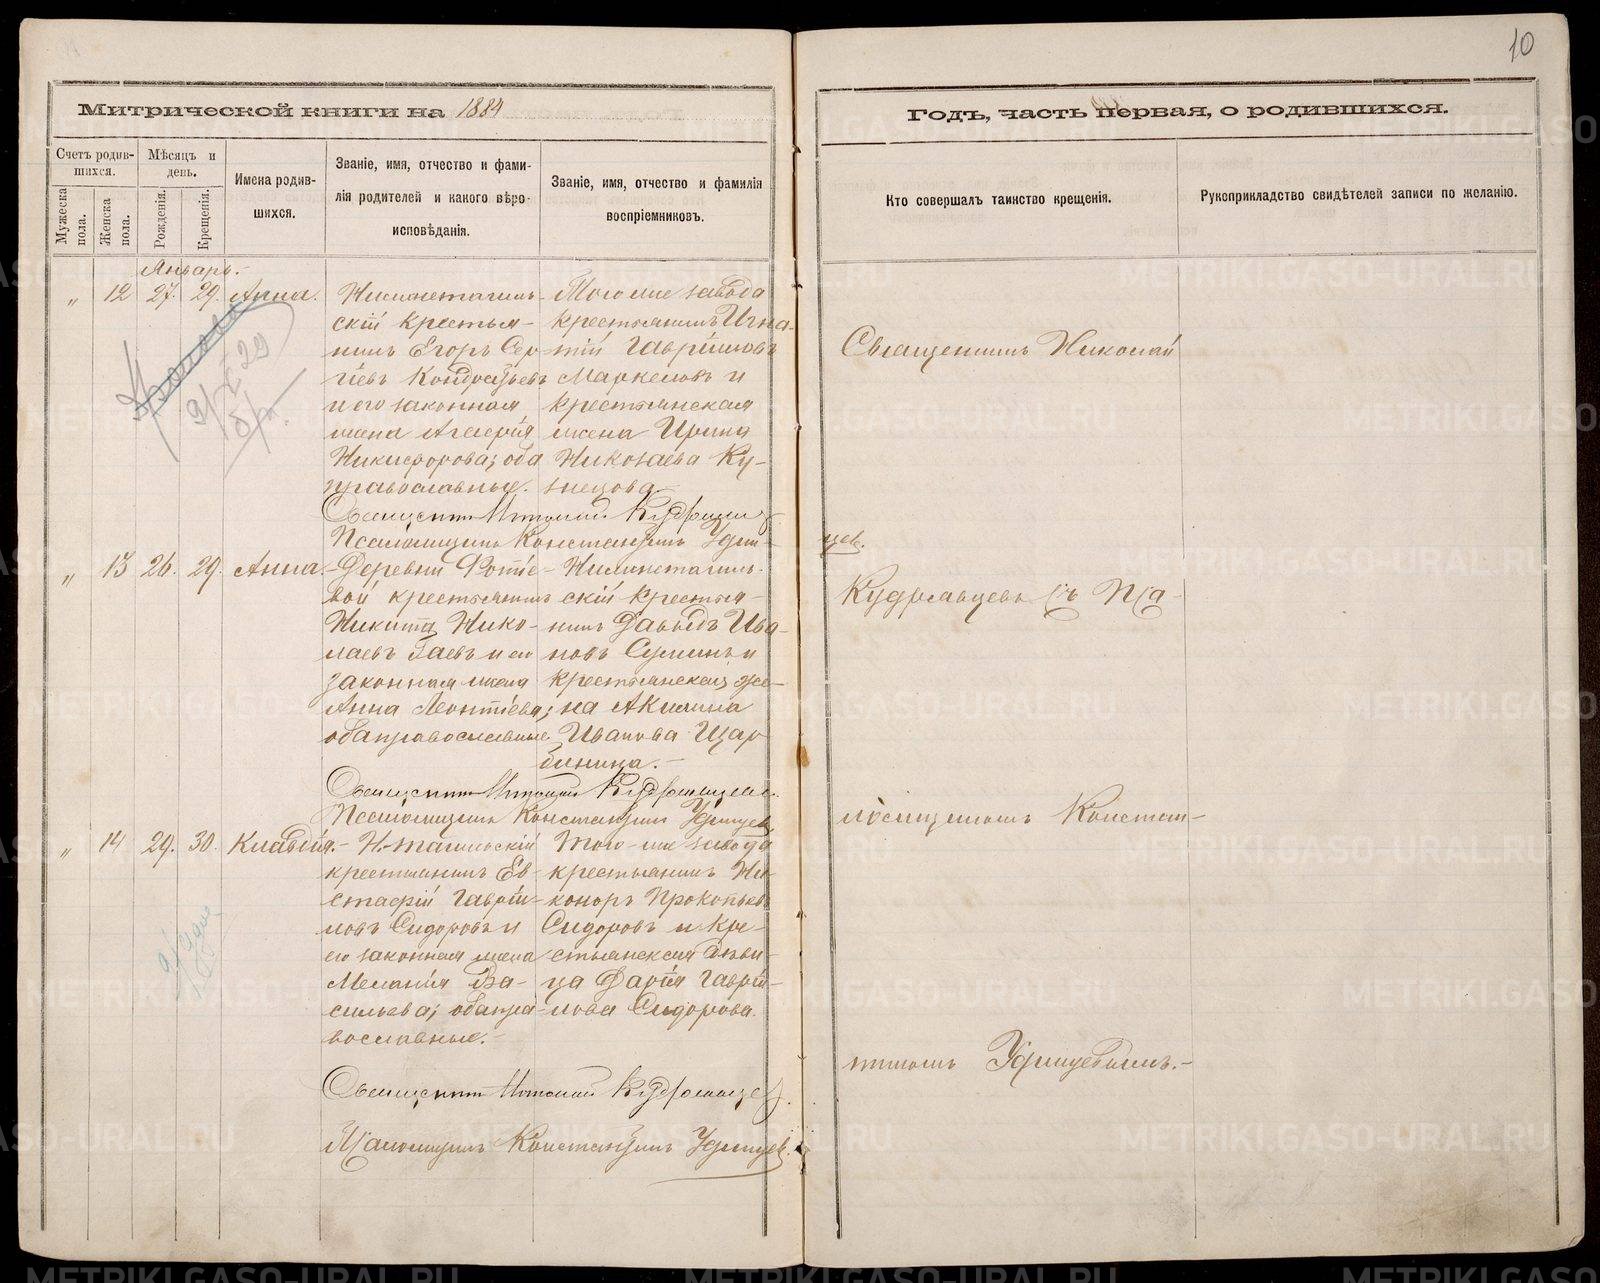 10
Митрической книги на 1884
Годъ, часть первая, о родившихся.
Счетъ родившихся.
Мужеска пола.
Женска пола.
Мѣсяцъ и день.
Рожденія.
Крещенія.
Имена родившихся.
Званіе, имя, отчество и фамилія родителей и какого вѣроисповѣданія.
Званіе, имя, отчество и фамилія воспріемниковъ.
Кто совершалъ таинство крещенія.
Рукоприкладство свидѣтелей записи по желанію.
Январь.
" 12 27. 29. Анна.
Нижнетагиль-
скій крестья-
нинъ Егоръ Сер-
гіевъ Кондратьевъ
и его законная
жена Агафія
Никифорова; оба
православные.
Того же завода
крестьянинъ Игна-
тій Гавріиловъ
Маркеловъ и
крестьянская
жена Ирина
Николаева Ку-
знецова.
Псаломщикъ Константинъ Удин-
цев.
" 13 26. 29. Анна.
Деревни Фотѣе-
вой крестьянинъ
Никита Нико-
лаевъ Гаевъ и его
законная жена
Анна Леонтіева;
оба православные.
Нижнетагиль-
скій крестья-
нинъ Давыдъ Ива-
новъ Суминъ и
крестьянская же-
на Акилина
Иванова Щер-
бинина.
Псаломщикъ Константинъ Удинцев
" 14 29. 30. Клавдія.
Н-тагильскій
крестьянинъ Ев-
стафій Гавріи-
ловъ Сидоровъ и
его законная жена
Меланія Ва-
сильева; оба пра-
вославные.
Того-же завода
крестьянинъ Ни-
коноръ Прокопьевъ
Сидоровъ и кре-
стьянская дѣви-
ца Дарія Гаврі-
лова Сидорова.
Псаломщикъ Константинъ Удинцев.
Священникъ Николай
Кудрявцевъ съ Пса-
ломщикомъ Констан-
тиномъ Удинцевымъ.
METRIKI.GASO-URAL.RU